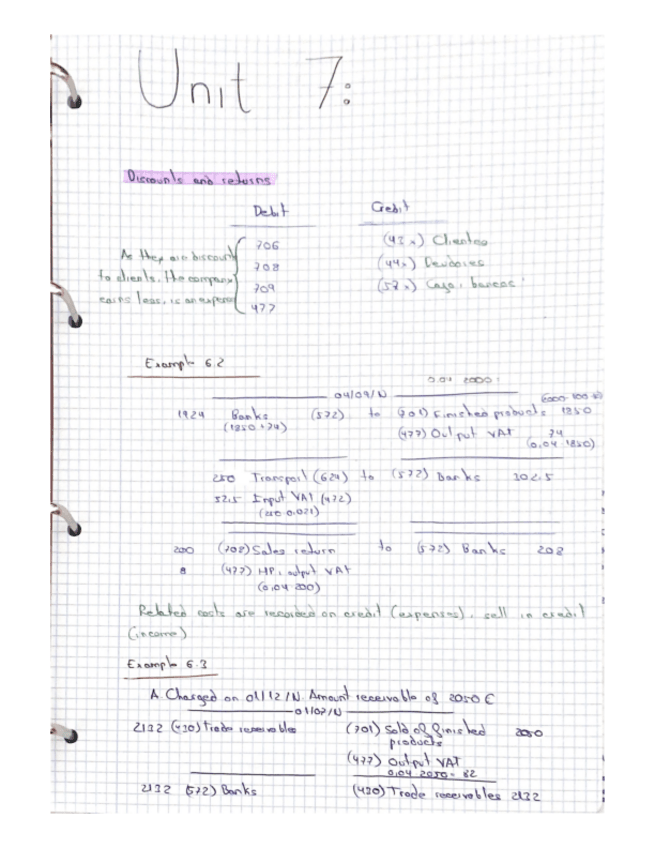 Unit 7:
Discounts and returns
Debit Credit
706 (43x) Clientes
As they are discount 708 (44x) Deudores
to clients, the company 709 (57x) Caja, bancos
earns less, is an expense 477
Example 6.2
0.04 2000
04/09/N
1924 Banks (572) to (701) Finished products 1850
(1850+74) (477) Output VAT 74
(0,04 1850)
250 Transport (624) to (572) Banks 302.5
52.5 Input VAT (472)
200 (708) Sales return to (572) Banks 208
8 (477) HP, output VAT
(0,04 200)
Related costs are recorded on credit (expenses), sell in credit
(income)
Example 6.3
A Charged on 01/12/N. Amount receivable of 2050 €
01/07/N
2132 (430) Trade receivables (701) Sold of finished 2050
products
(477) Output VAT
0,04 2050 = 82
2132 (572) Banks (430) Trade receivables 2132